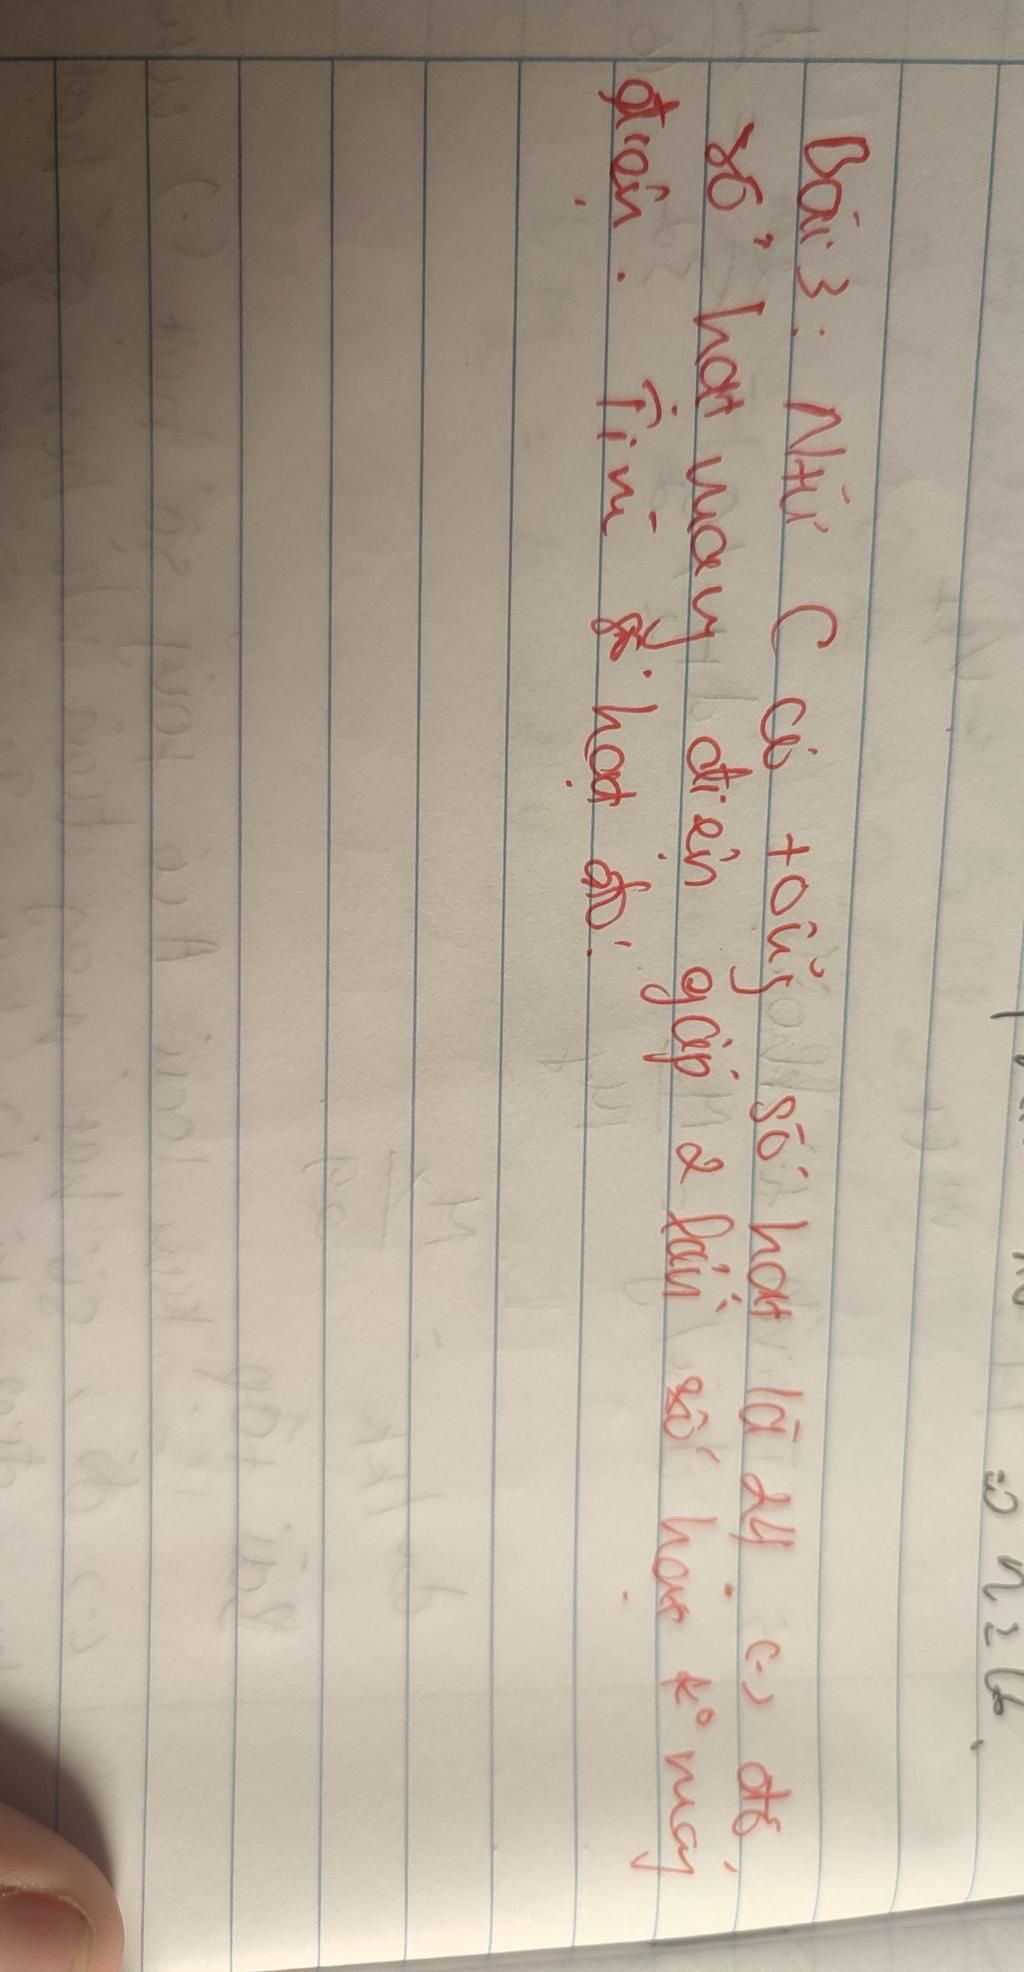 ⇒ n = 6.
Bài 3: Ntử C có tổng số hạt là 24. (.) đó
số hạt mang điện gấp 2 lần số hạt k° mang
điện. Tìm số hạt đó.